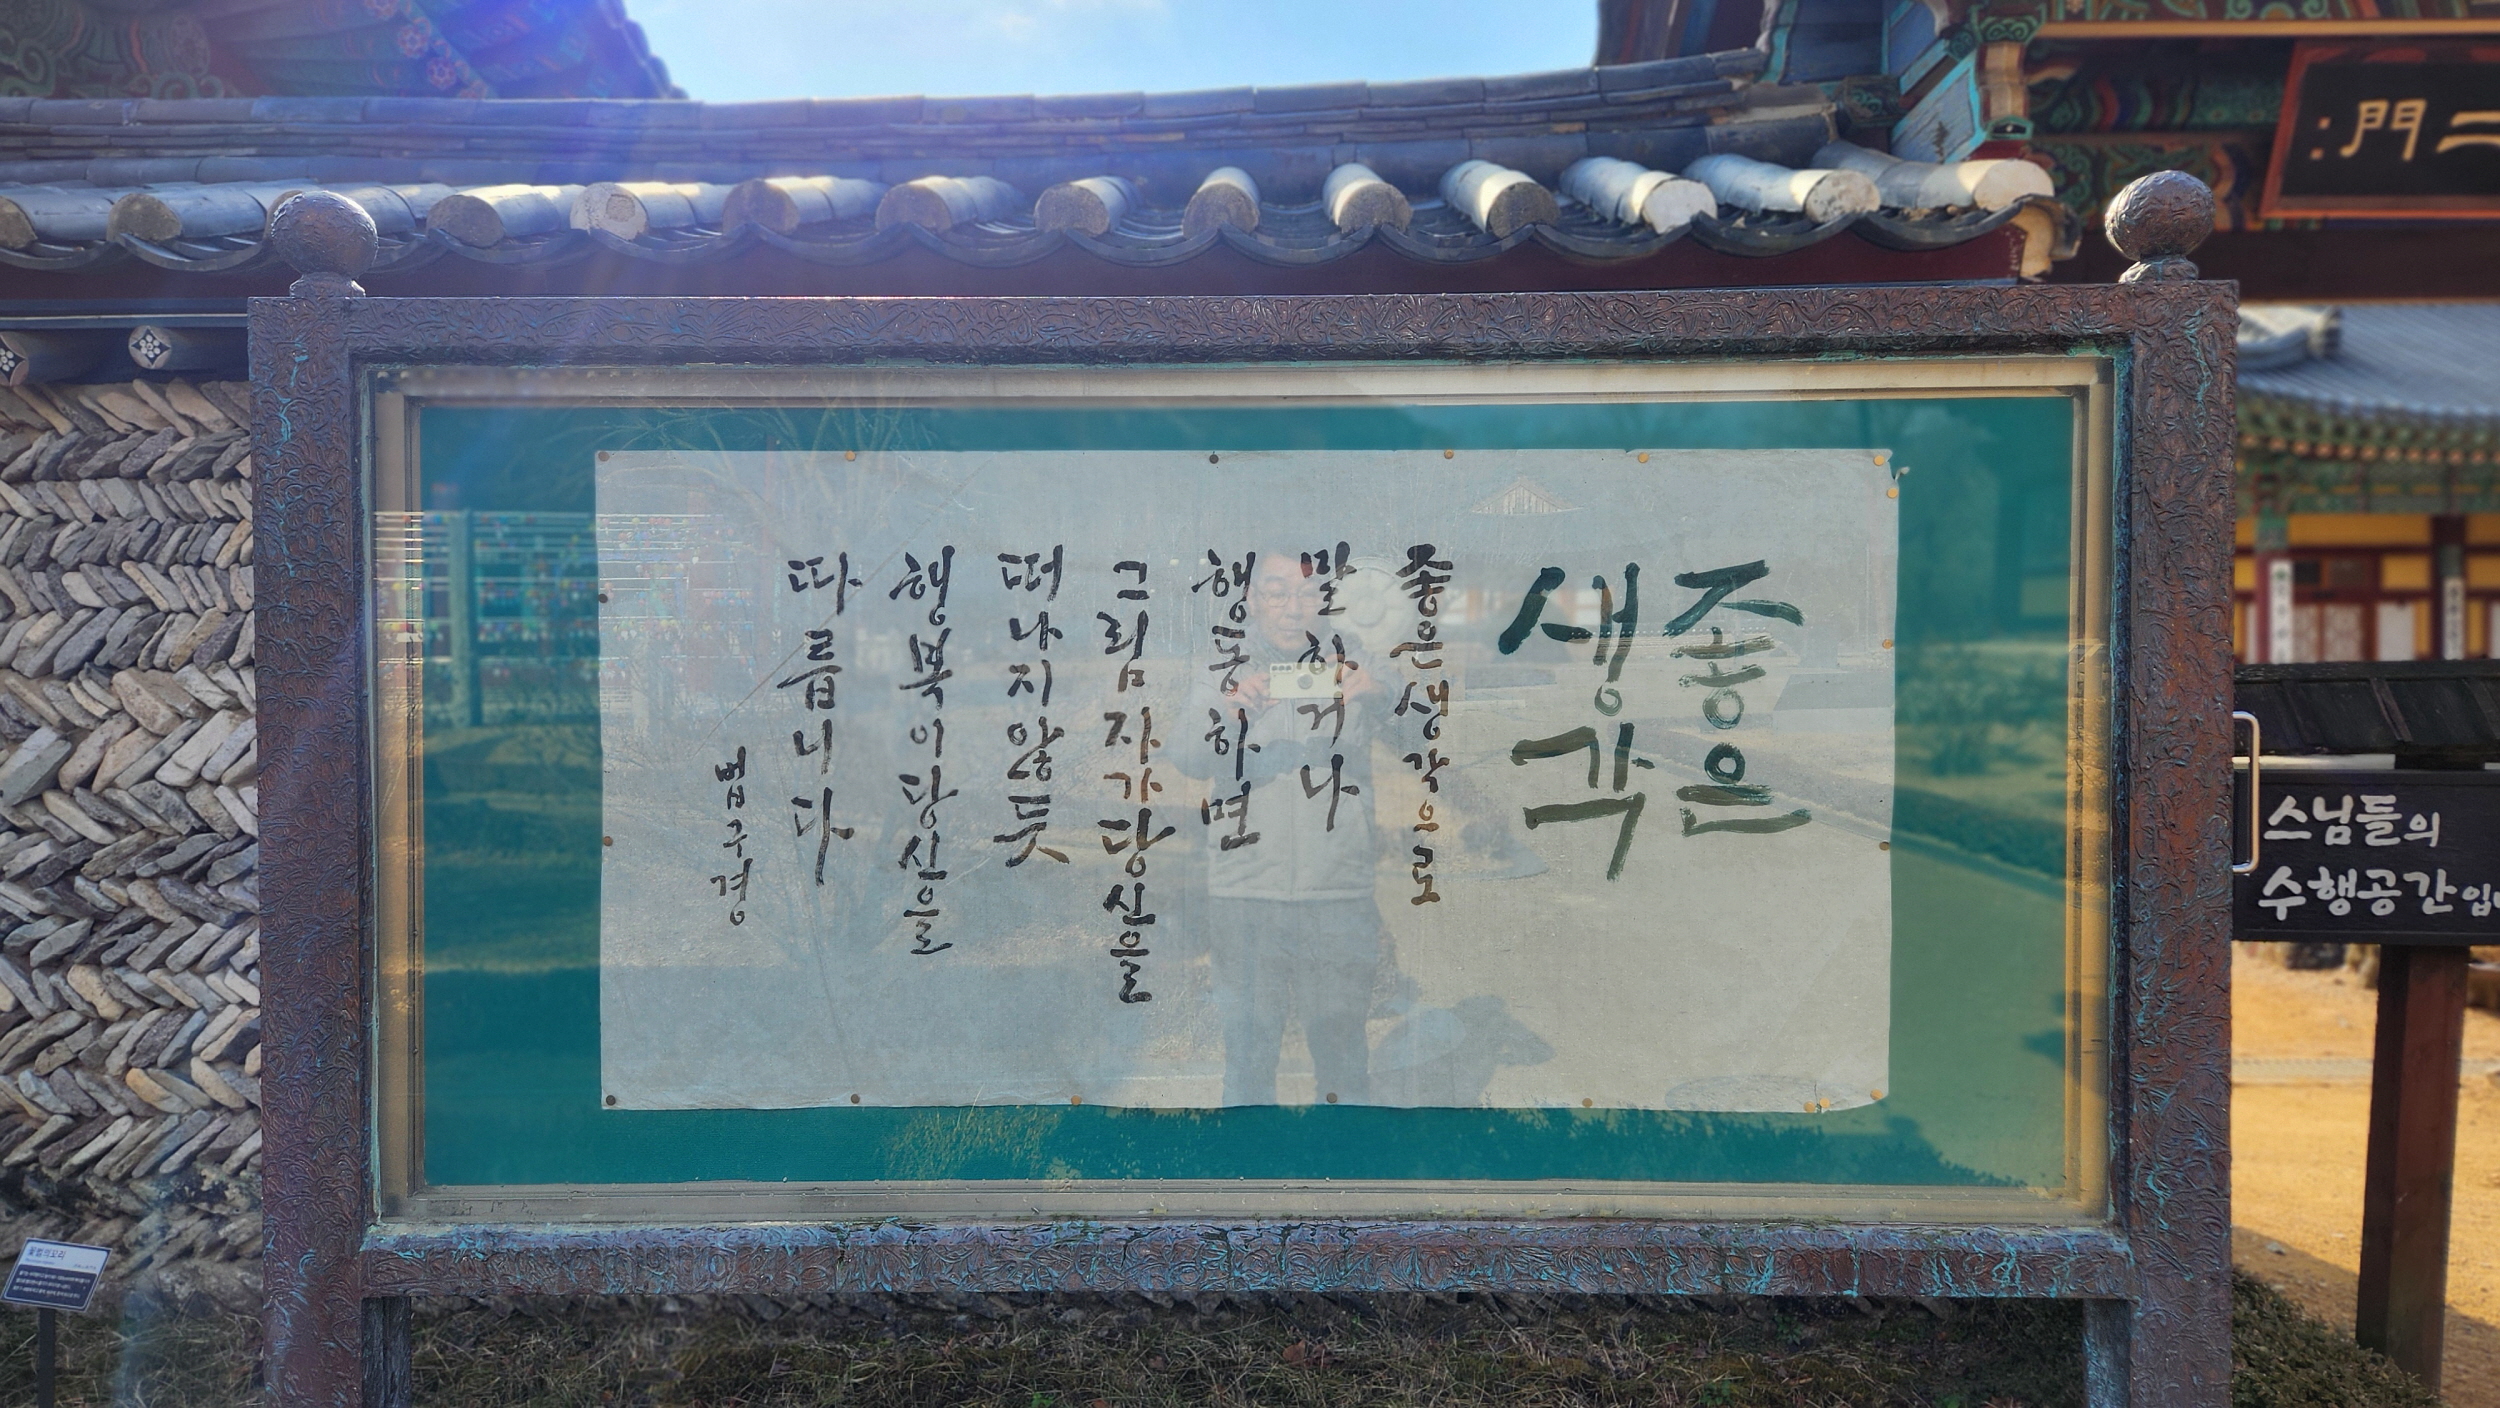 좋은
생각
좋은생각으로
말하거나
행동하면
그림자가당신을
떠나지않듯
행복이당신을
따릅니다
법구경
二門
스님들의
수행공간입